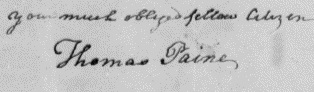 your much obliged fellow Citizen
Thomas Paine